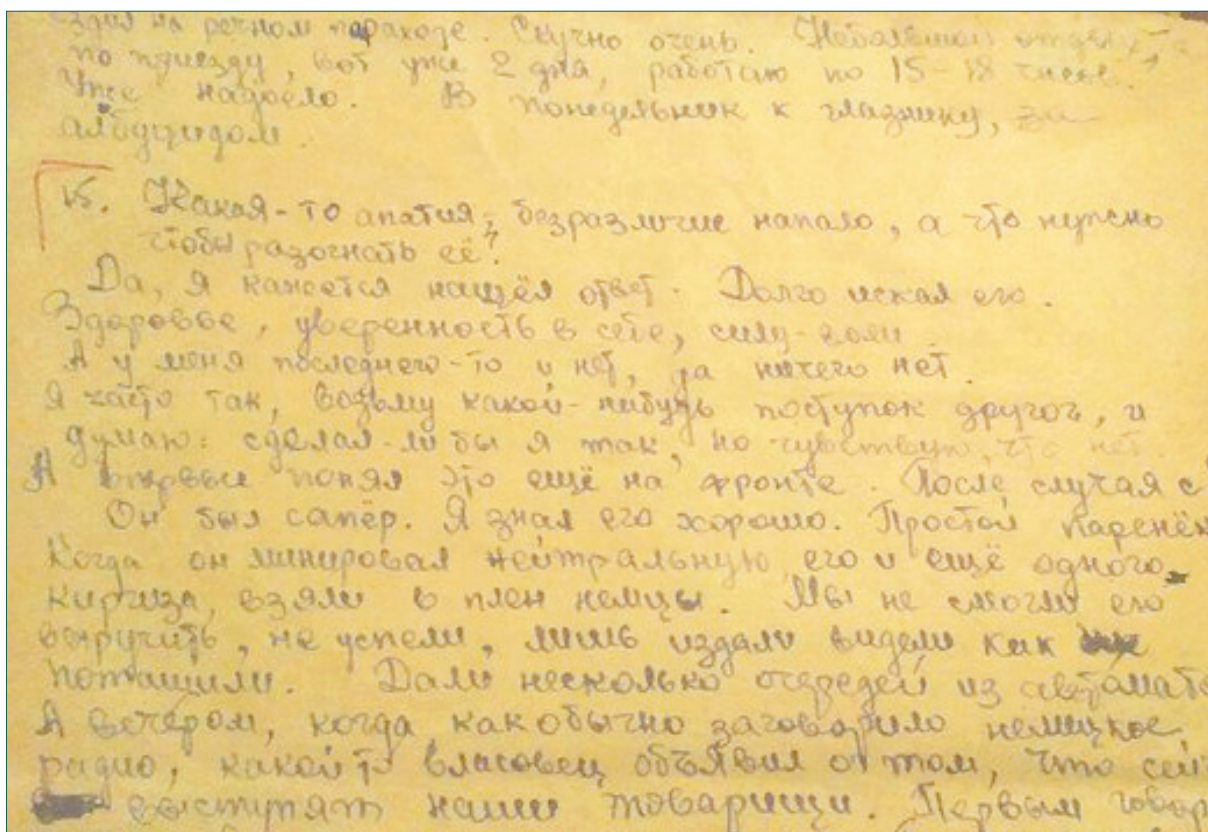 ездил на речном параходе. Скучно очень. Небольшой отдых
по приезду, вот уже 2 дня, работаю по 15-18 часов.
Уже надоело. В понедельник к глазнику, за
альбуцидом.
15. Какая-то апатия, безразличие напало, а что нужно
чтобы разогнать её?
Да, я кажется нашёл ответ. Долго искал его.
Здоровье, уверенность в себе, силу-воли.
А у меня последнего-то и нет, да ничего нет.
Я часто так, возьму какой-нибудь поступок другог, и
думаю: сделал-ли бы я так, но чувствую, что нет.
А впервые понял это ещё на фронте. После случая с
Он был сапёр. Я знал его хорошо. Простой паренёк
Когда он минировал нейтральную, его и ещё одного
киргиза, взяли в плен немцы. Мы не смогли его
выручить, не успели, лишь издали видели как
потащили. Дали несколько очередей из автомато
А вечером, когда как обычно заговорило немецкое
радио, какой то власовец объявил о том, что сей
выступят наши товарищи. Первым говор